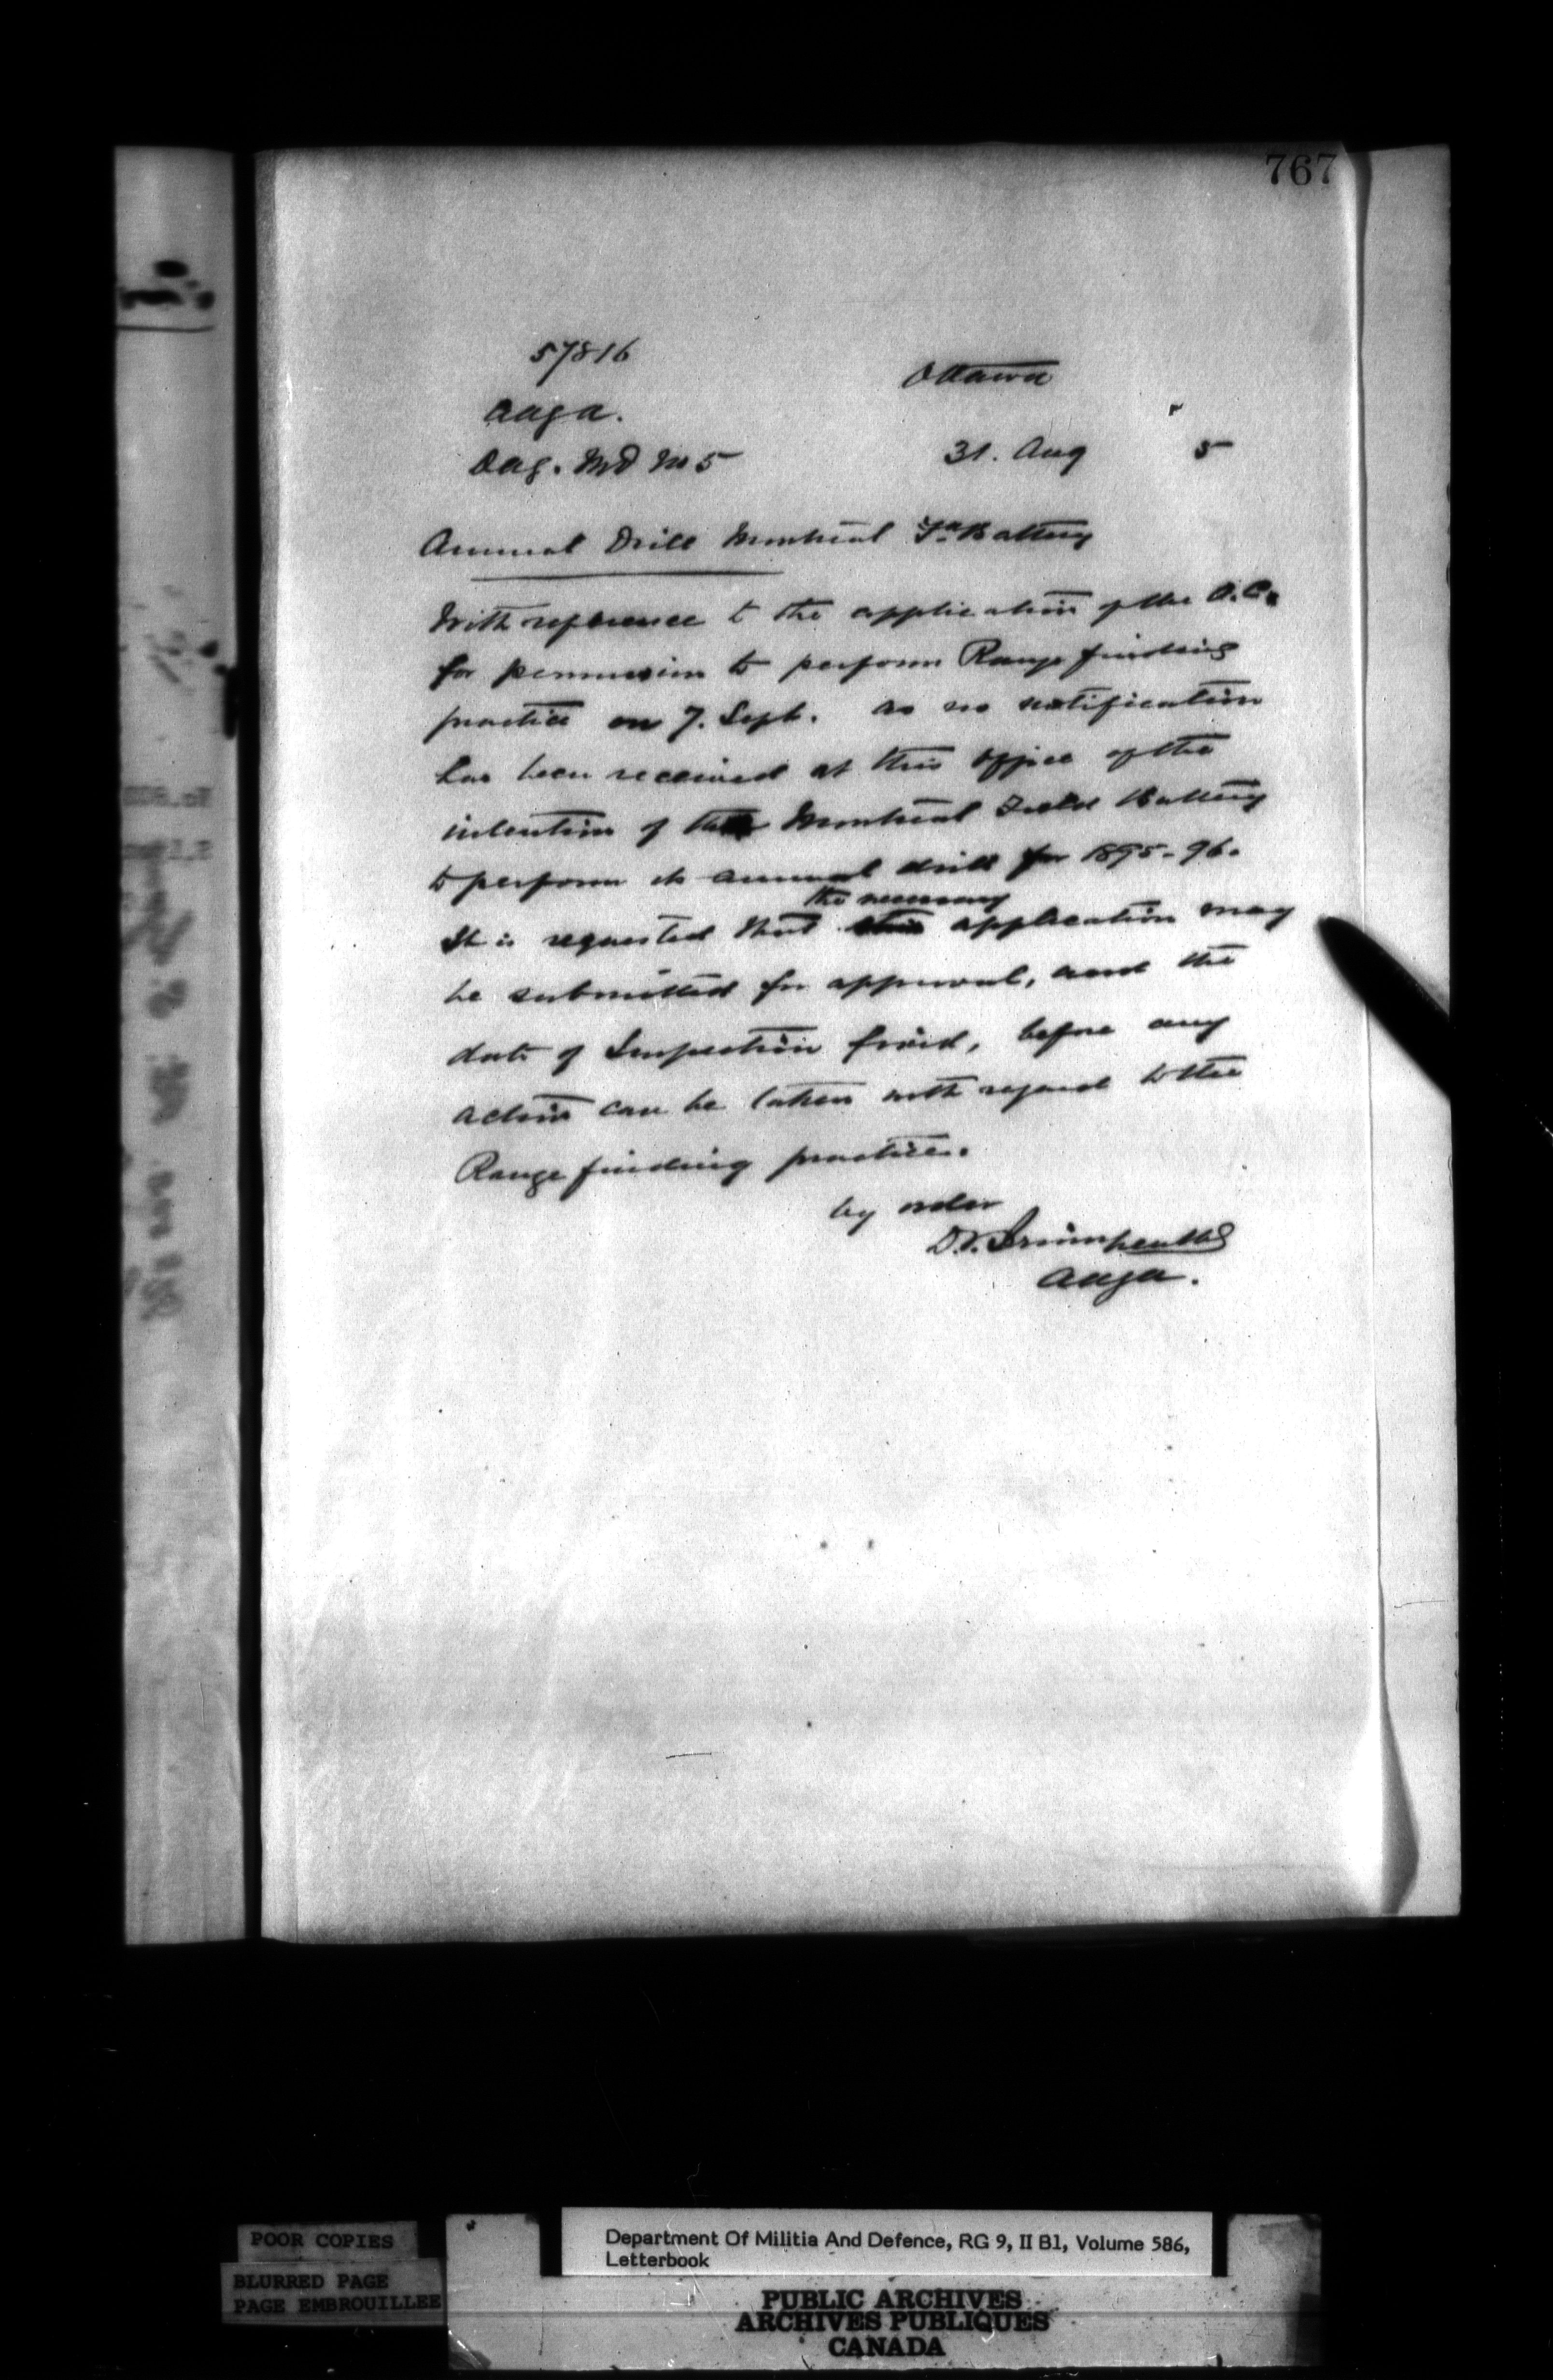 767
57816
Ottawa
aaga.
Dag. MD No 5
31. Aug 5
Annual Drill Montreal Fd Battery
With reference to the application of the O.C.
for permission to perform Range finding
practice on 7. Sept. as no notification
has been received at this office of the
intention of the Montreal Field Battery
to perform its annual drill for 1895-96.
the necessary
It is requested that application may
be submitted for approval, and the
date of Inspection fixed, before any
action can be taken with regard to the
Range finding practice.
by order
aaga.
POOR COPIES
BLURRED PAGE
PAGE EMBROUILLEE
Department Of Militia And Defence, RG 9, II B1, Volume 586,
Letterbook
PUBLIC ARCHIVES
ARCHIVES PUBLIQUES
CANADA